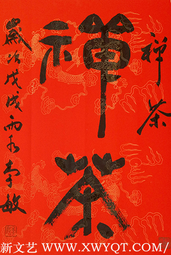 禅茶
禪茶
歲次戊戌雨水李敏
新文艺 WWW.XWYQT.COM